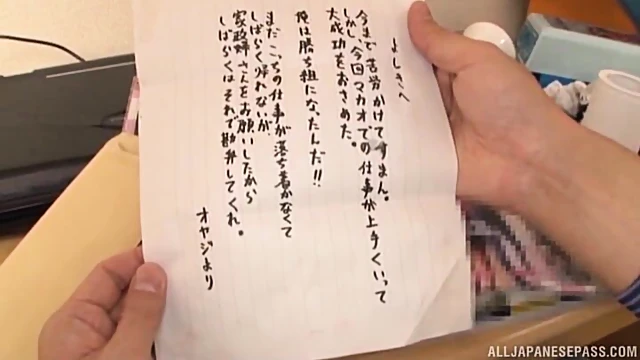 よしきへ
今まで苦労かけてすまん。
しかし、今回マカオでの仕事が上手くいって
大成功をおさめた。
俺は勝ち組になったんだ!!
まだこっちの仕事が落ち着かなくて
しばらく帰れないが、
家政婦さんをお願いしたから
しばらくはそれで勘弁してくれ。
オヤジより
ALLJAPANESEPASS.COM